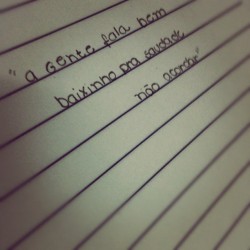 "a gente fala bem
baixinho pra saudade
não acordar"